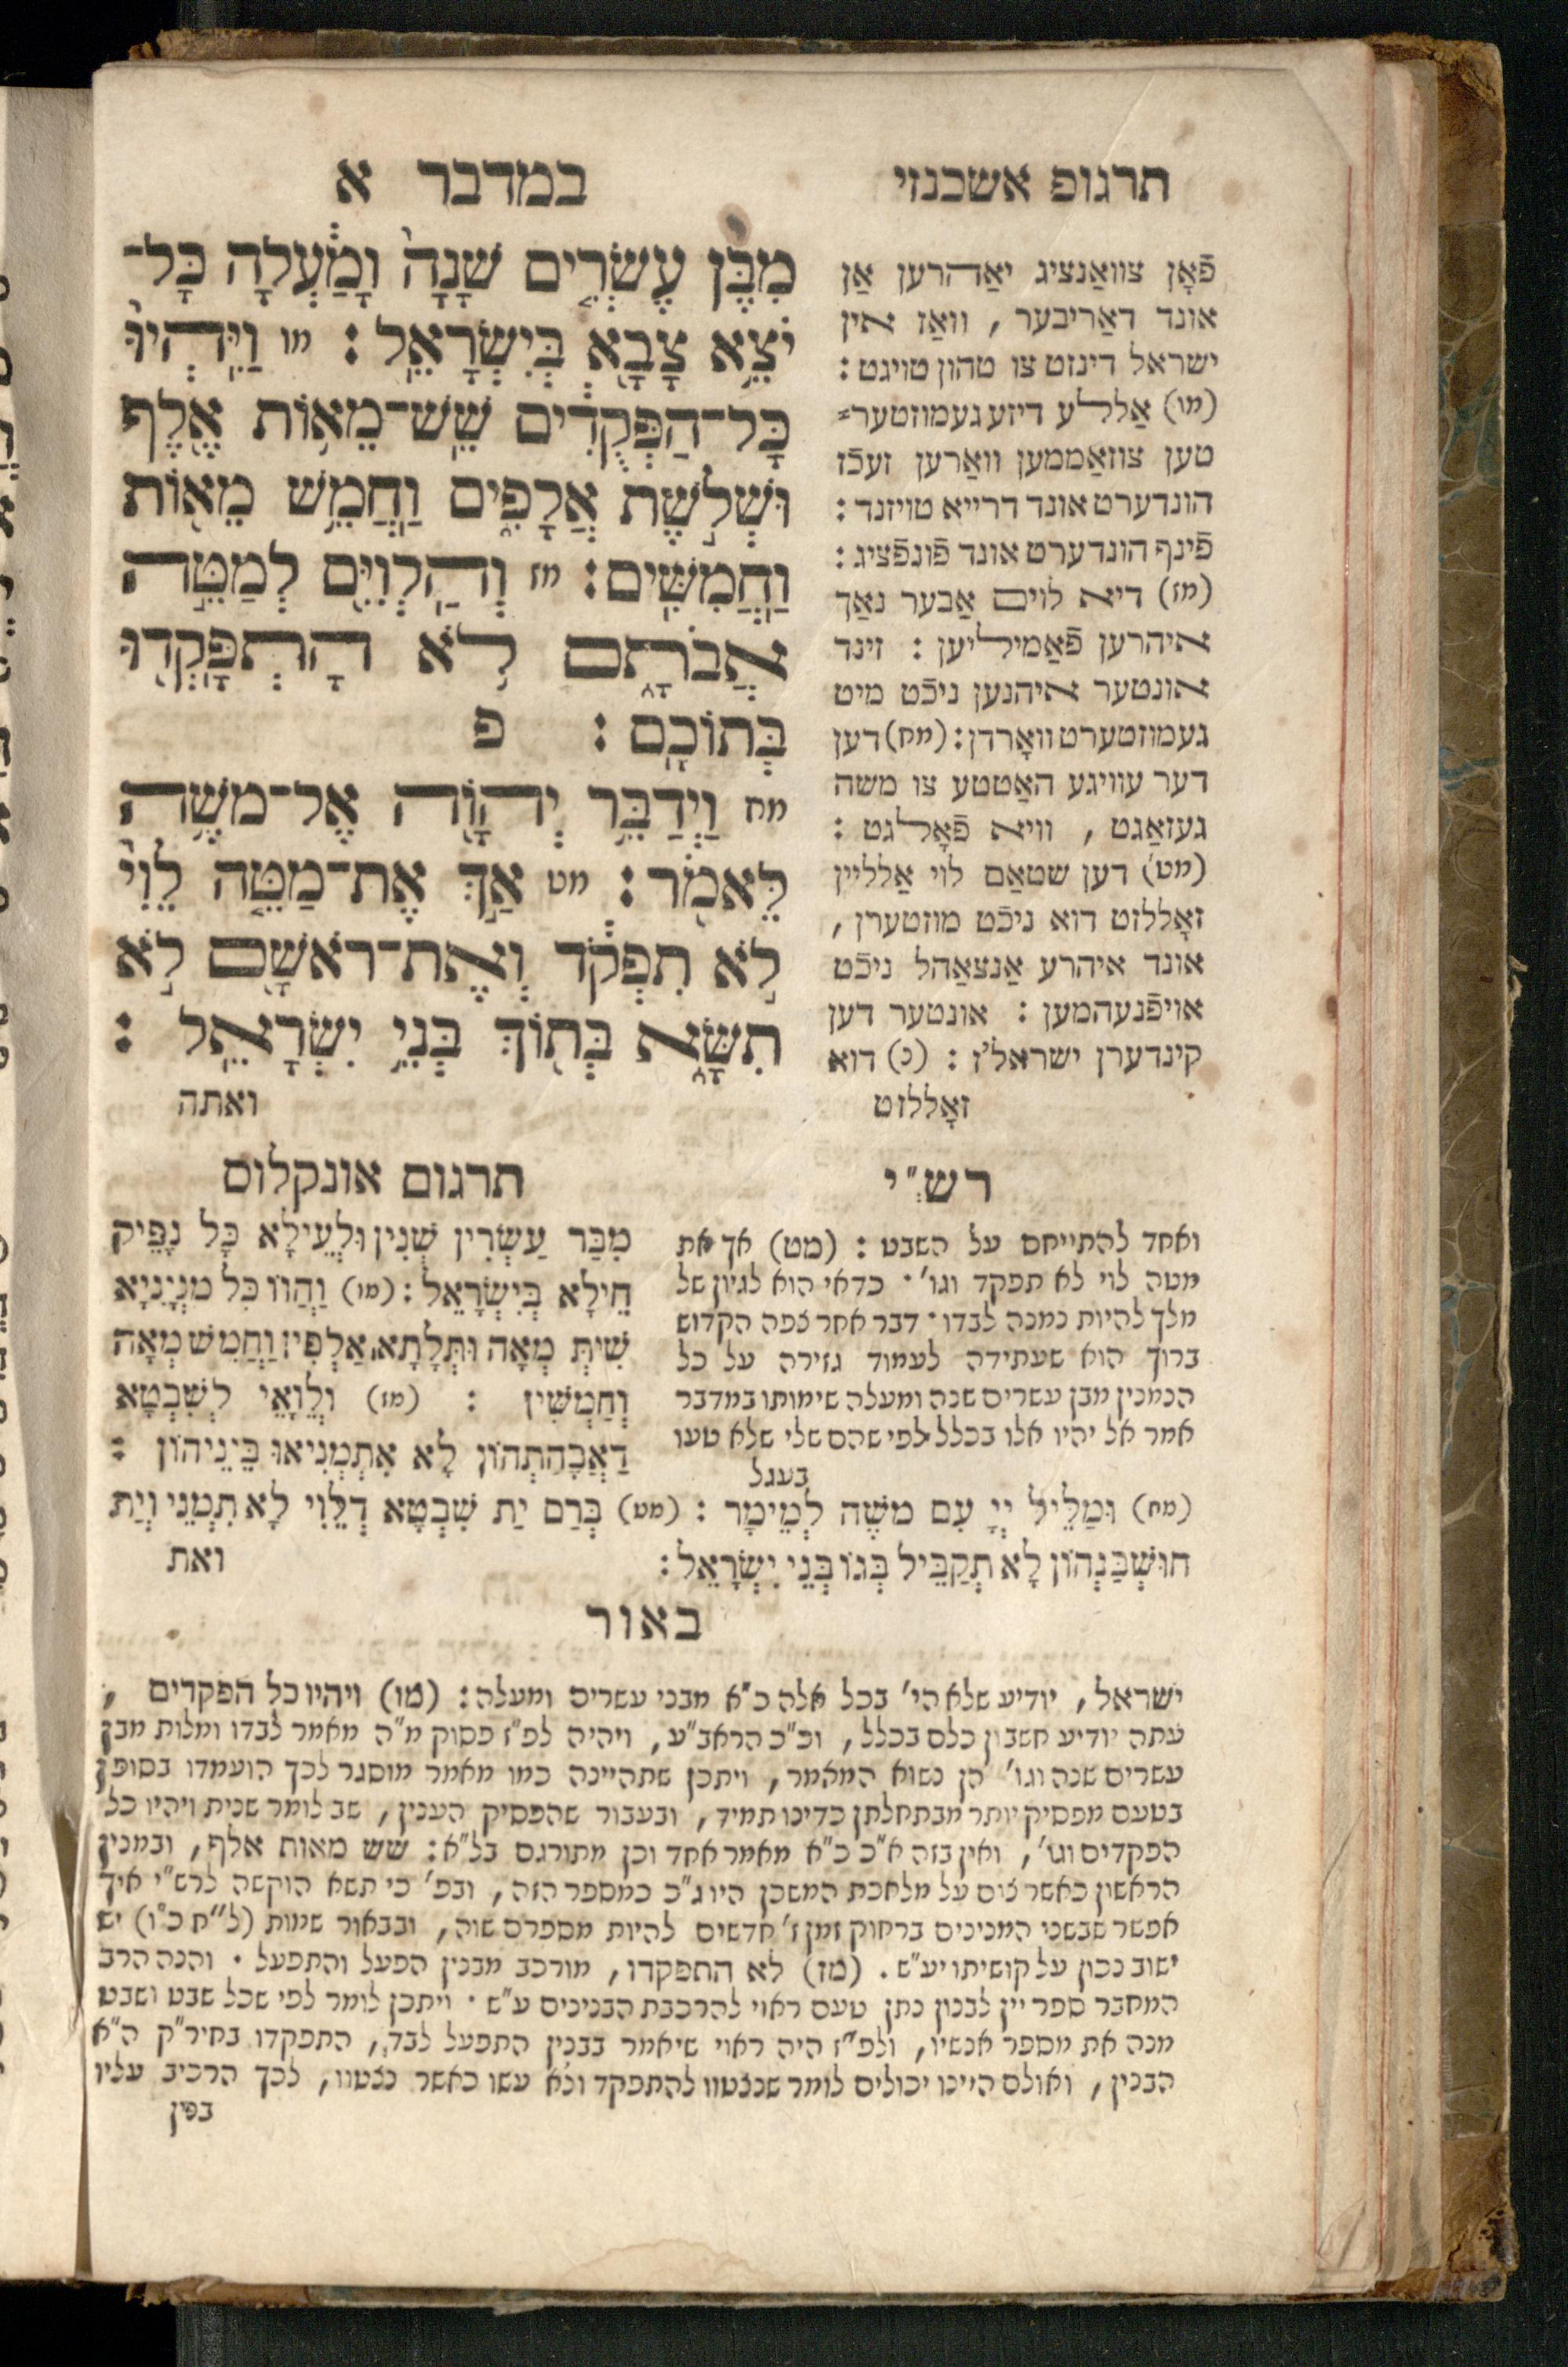 תרגום אשכנזי
במדבר א
מִבֶּ֨ן עֶשְׂרִ֤ים שָׁנָה֙ וָמַ֔עְלָה כָּל־
יֹצֵ֥א צָבָ֖א בְּיִשְׂרָאֵֽל׃ מו וַיִּֽהְיוּ֙
כָּל־הַפְּקֻדִ֔ים שֵׁשׁ־מֵא֥וֹת אֶ֖לֶף
וּשְׁלֹ֣שֶׁת אֲלָפִ֑ים וַחֲמֵ֥שׁ מֵא֖וֹת
וַחֲמִשִּֽׁים׃ מז וְהַֽלְוִיִּ֖ם לְמַטֵּ֣ה
אֲבֹתָ֑ם לֹ֥א הָתְפָּֽקְד֖וּ
בְּתוֹכָֽם׃ פ
מח וַיְדַבֵּ֥ר יְהוָֹ֖ה אֶל־מֹשֶׁ֥ה
לֵּאמֹֽר׃ מט אַ֣ךְ אֶת־מַטֵּ֤ה לֵוִי֙
לֹ֣א תִפְקֹ֔ד וְאֶת־רֹאשָׁ֖ם לֹ֣א
תִשָּׂ֑א בְּת֖וֹךְ בְּנֵ֥י יִשְׂרָאֵֽל׃
ואתה
פֿאָן צוואַנציג יאַהרען אַן
אונד דאַריבער, וואַז אין
ישראל דינזט צו טהון טויגט:
(מו) אַללע דיזע געמוזטער⸗
טען צוזאַממען וואַרען זעכֿז
הונדערט אונד דרייא טויזנד:
פֿינף הונדערט אונד פֿונפֿציג:
(מז) דיא לוים אַבער נאַך
איהרען פֿאַמיליען: זינד
אונטער איהנען ניכֿט מיט
געמוזטערט וואָרדן: (מח) דען
דער עוויגע האַטטע צו משה
געזאַגט, וויא פֿאָלגט:
(מט) דען שטאַם לוי אַלליין
זאָללזט דוא ניכֿט מוזטערן,
אונד איהרע אַנצאַהל ניכֿט
אויפֿנעהמען: אונטער דען
קינדערן ישראל'ז: (נ) דוא
זאָללזט
רש"י
ואחד להתייחס על השבט: (מט) אך את
מטה לוי לא תפקד וגו'. כדאי הוא לגיון של
מלך להיות נמנה לבדו. דבר אחר צפה הקדוש
ברוך הוא שעתידה לעמוד גזירה על כל
הנמנין מבן עשרים שנה ומעלה שימותו במדבר
אמר אל יהיו אלו בכלל לפי שהם שלי שלא טעו
בעגל
תרגום אונקלוס
מִבַּר עַשְׂרִין שְׁנִין וּלְעֵילָא כָּל נָפֵיק
חֵילָא בְּיִשְׂרָאֵל: (מו) וַהֲווֹ כָּל מִנְיָנַיָא
שִׁית מְאָה וּתְלָתָא אַלְפִין וַחֲמֵשׁ מְאָה
וְחַמְשִׁין: (מז) וְלֵוָאֵי לְשִׁבְטָא
דַאֲבָהָתְהוֹן לָא אִתְמְנִיאוּ בֵּינֵיהוֹן:
(מח) וּמַלֵּיל יְיָ עִם משֶׁה לְמֵימָר: (מט) בְּרַם יַת שִׁבְטָא דְלֵוִי לָא תִמְנֵי וְיַת
חוּשְׁבַּנְהוֹן לָא תְקַבֵּיל בְּגוֹ בְּנֵי יִשְׂרָאֵל:
ואת
באור
ישראל, יודיע שלא הי' בכל אלה כ"א מבני עשרים ומעלה: (מו) ויהיו כל הפקדים,
עתה יודיע חשבון כלם בכלל, וכ"כ הראב"ע, ויהיה לפ"ז פסוק מ"ה מאמר לבדו ומלות מבן
עשרים שנה וגו' הן נשוא המאמר, ויתכן שתהיינה כמו מאמר מוסגר לכך הועמדו בסופן
בטעם מפסיק יותר מבתחלתן כדינו תמיד, ובעבור שהפסיק הענין, שב לומר שנית ויהיו כל
הפקדים וגו', ואין בזה א"כ כ"א מאמר אחד וכן מתורגם בל"א: שש מאות אלף, ובמנין
הראשון כאשר צום על מלאכת המשכן היו ג"כ כמספר הזה, ובפ' כי תשא הוקשה לרש"י איך
אפשר שבשני המנינים ברחוק זמן ז' חדשים להיות מספרם שוה, ובבאור שמות (ל"ח כ"ו) יש
ישוב נכון על קושיתו יע"ש. (מז) לא התפקדו, מורכב מבנין הפעל והתפעל. והנה הרב
המחבר ספר יין לבנון נתן טעם ראוי להרכבת הבנינים ע"ש. ויתכן לומר לפי שכל שבט ושבט
מנה את מספר אנשיו, ולפ"ז היה ראוי שיאמר בבנין התפעל לבד, התפקדו בחיר"ק ה"א
הבנין, ואולם היינו יכולים לומר שנצטוו להתפקד ולא עשו כאשר נצטוו, לכך הרכיב עליו
בנין